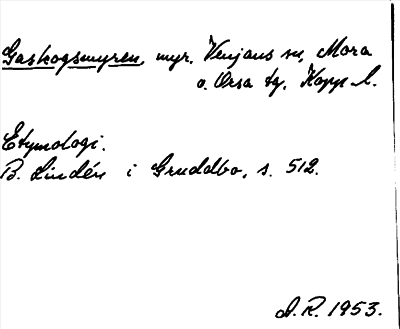 Gaskogsmyren, myr. Venjans sn, Mora
o. Orsa tg. Kopp. l.
Etymologi.
B. Lindén i Gruddbo, s. 512.
D. R. 1953.